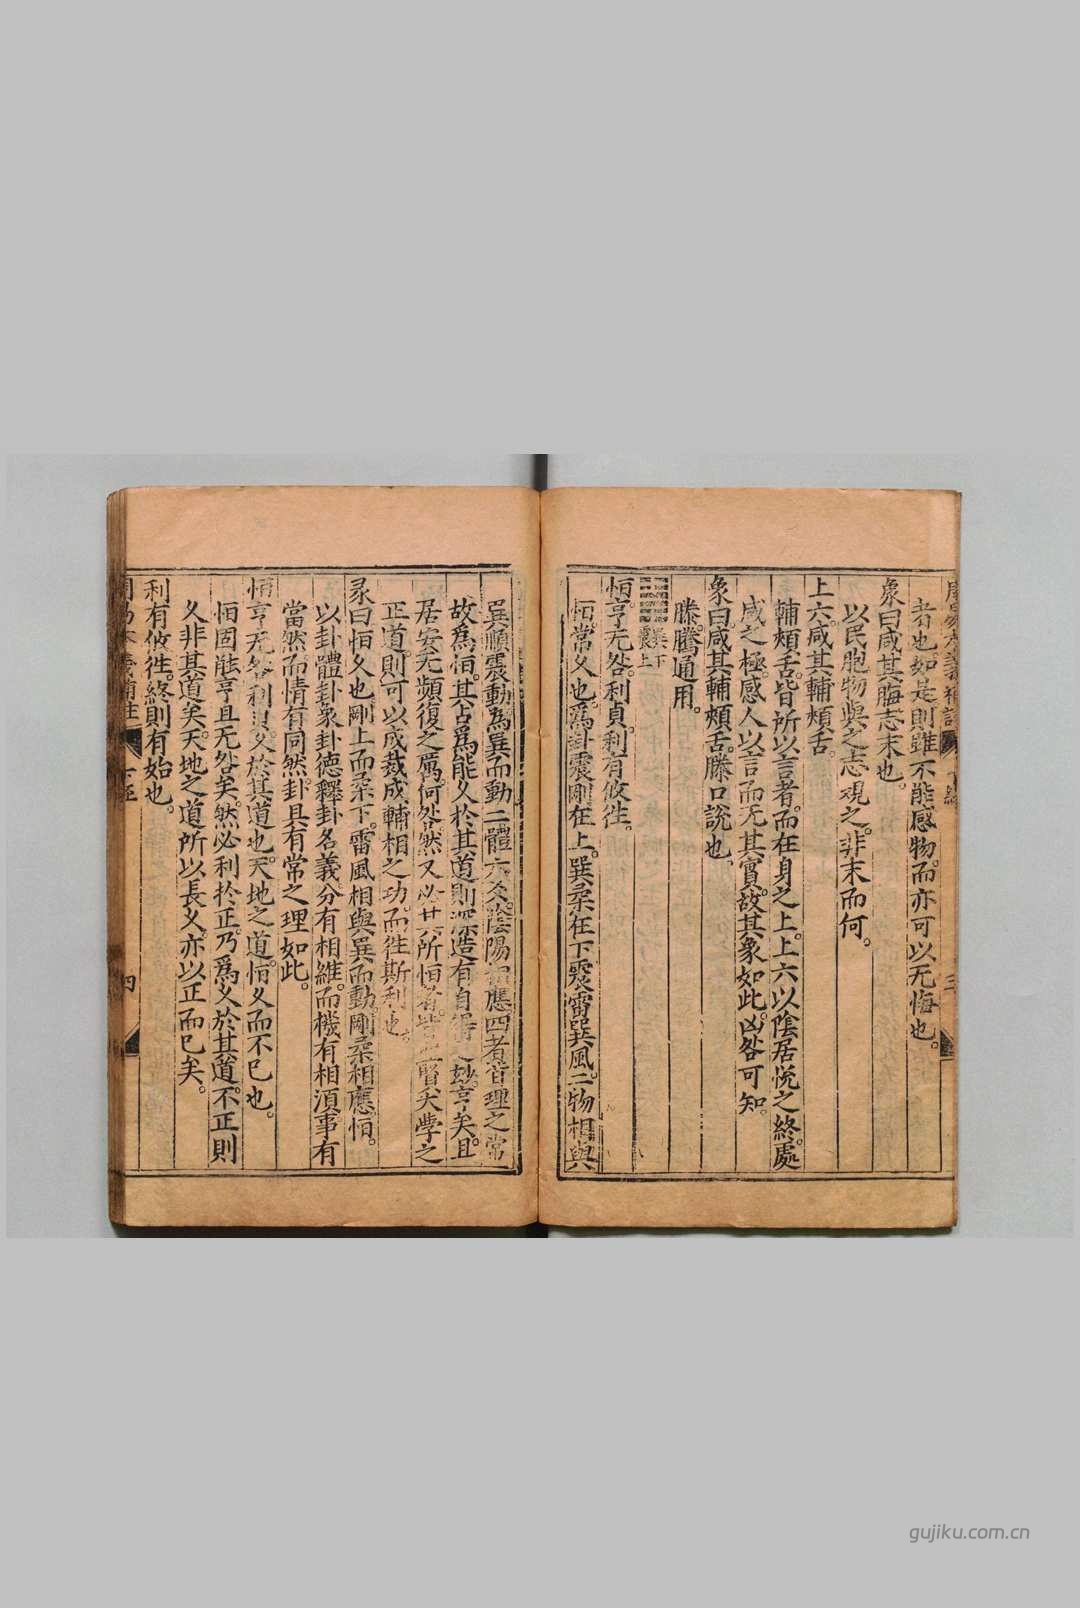 者也如是則雖不能感物而亦可以无悔也
象曰咸其脢志末也
以民胞物與之志觀之非末而何
上六咸其輔頰舌
輔頰舌皆所以言者而在身之上上六以陰居悅之終處
咸之極感人以言而无其實故其象如此凶咎可知
象曰咸其輔頰舌滕口說也
滕騰通用
巽下
震上
恒亨无咎利貞利有攸徃
恒常久也爲卦震剛在上巽柔在下震雷巽風二物相與
巽順震動為巽而動二體六爻陰陽相應四者皆理之常
故爲恒其占爲能久於其道則深造有自得之妙亨矣且
居安无頻復之厲何咎然又必其所恒者皆聖賢矣學之
正道則可以成裁成輔相之功而徃斯利也
彖曰恒久也剛上而柔下雷風相與巽而動剛柔相應恒
以卦體卦象卦德釋卦名義分有相維而機有相湏事有
當然而情有同然卦具有常之理如此
恒亨无咎利貞久於其道也天地之道恒久而不已也
恒固能亨且无咎矣然必利於正乃爲久於其道不正則
久非其道矣天地之道所以長久亦以正而已矣
利有攸徃終則有始也
周易本義補註 下經 四
gujiku.com.cn